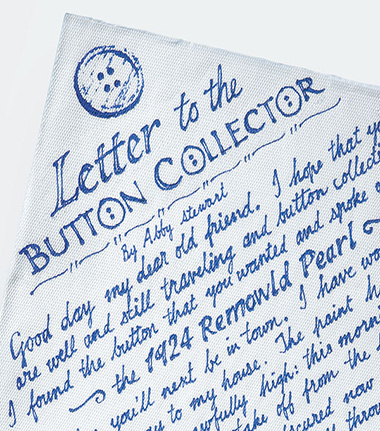 Letter to the
BUTTON COLLECTOR
By Abby stewart
Good day my dear old friend. I hope that
are well and still traveling and button
I found the button that you wanted and spoke
the 1924 Remowld Pearl
you'll next be in town. I have
to my house. The paint
high: this
take off from the
now